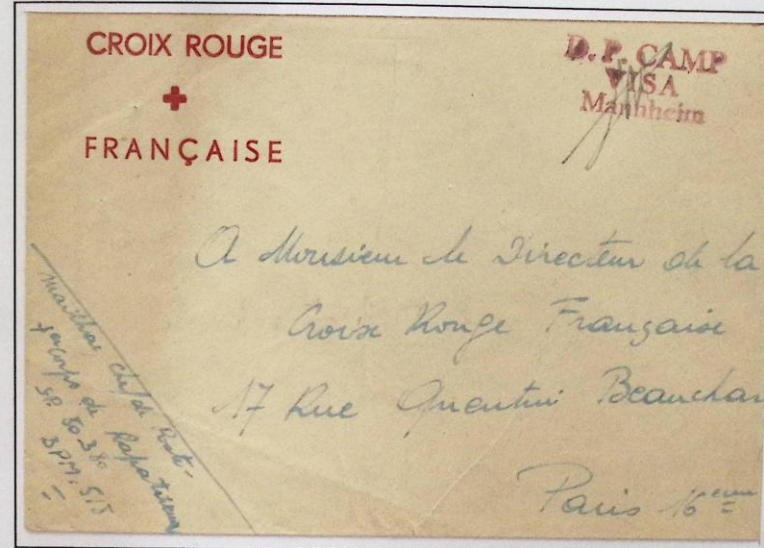 CROIX ROUGE
FRANÇAISE
D.P. CAMP
VISA
Mannheim
A Monsieur le Directeur de la
Croix Rouge Française
17 Rue Quentin Beauchar
Paris 16eme
chef de Poste
corps de Rapatrieme
SP. 50.380
BPM. 515